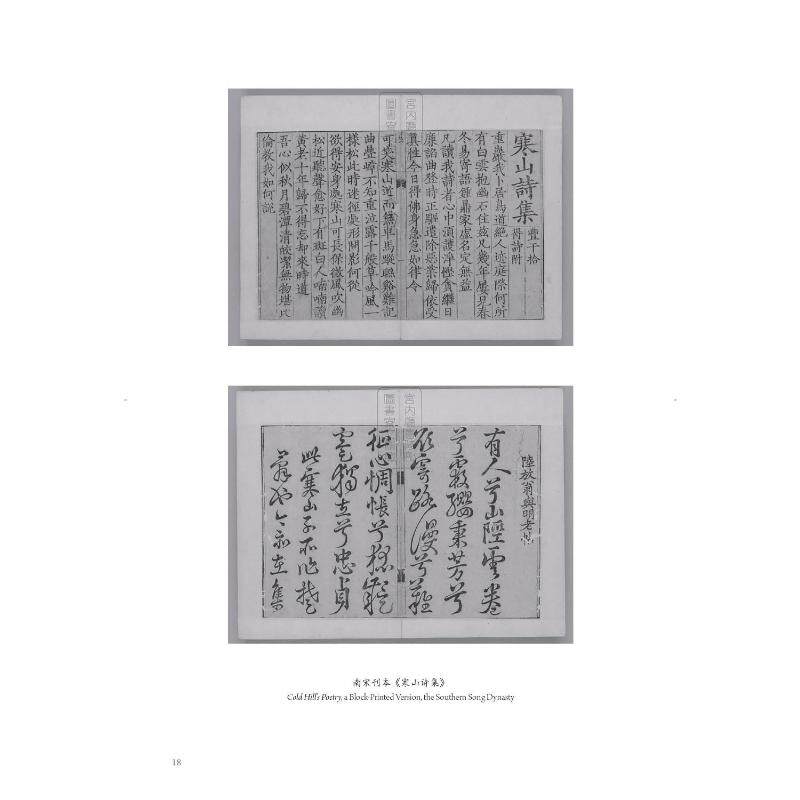 寒山詩集
豐干拾
得詩附
重巖我卜居鳥道絕人迹庭際何所
有白雲抱幽石住茲凡幾年屢見春
冬易寄語鍾鼎家虛名定無益
凡讀我詩者心中須護淨慳貪繼日
廉諂曲登時正驅遣除惡業歸依受
真性今日得佛身急急如律令
可笑寒山道而無車馬蹤聯谿難記
曲疊嶂不知重泣露千般草吟風一
樣松此時迷徑處形問影何從
欲得安身處寒山可長保微風吹幽
松近聽聲愈好下有斑白人喃喃讀
黃老十年歸不得忘却來時道
吾心似秋月碧潭清皎潔無物堪比
倫教我如何說
陸放翁與明老帖
有人兮山陘雲卷
兮霞纓秉芳兮
欲寄路漫兮難
征心惆悵兮狐疑
蹇獨立兮忠貞
此寒山子所作楚
辭也今亦在集
南宋刊本《寒山诗集》
Cold Hill's Poetry, a Block-Printed Version, the Southern Song Dynasty
18